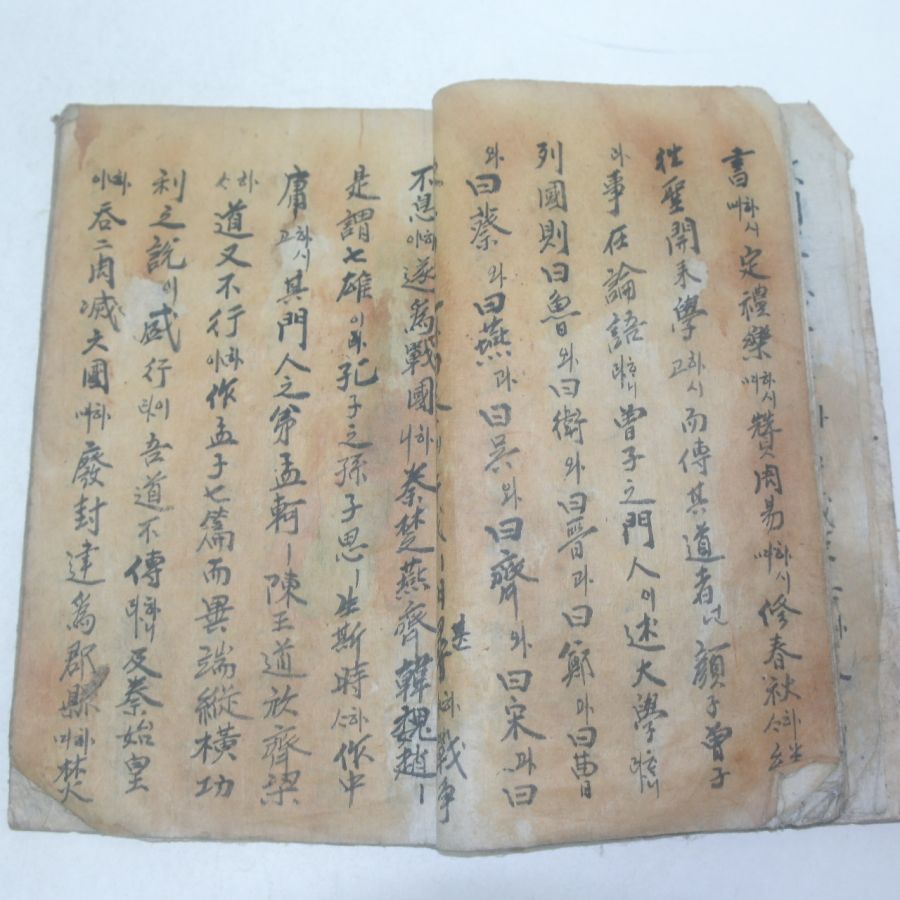 書하시며 定禮樂하시며 贊周易하시며 修春秋하사 
徃聖開来學하시고 而傳其道者ᄂᆞᆫ 顔子曾子
라 事在論語하니라 曾子之門人이 述大學하니라
列國則曰魯와 曰衛와 曰晋과 曰鄭과 曰曺
와 曰蔡와 曰燕과 曰吳와 曰齊와 曰宋과 曰
戰争
不息하야 遂爲戰國하니 秦楚燕齊韓魏趙ㅣ
是謂七雄이라 孔子之孫子思ㅣ 生斯時하사 作中
庸하시고 其門人之弟孟軻ㅣ 陳王道於齊梁
하사 道又不行하야 作孟子七篇而異端縱橫功
利之說이 盛行 吾道不傳하니라 及秦始皇
하야 呑二周滅六國하며 廢封建爲郡縣하며 焚